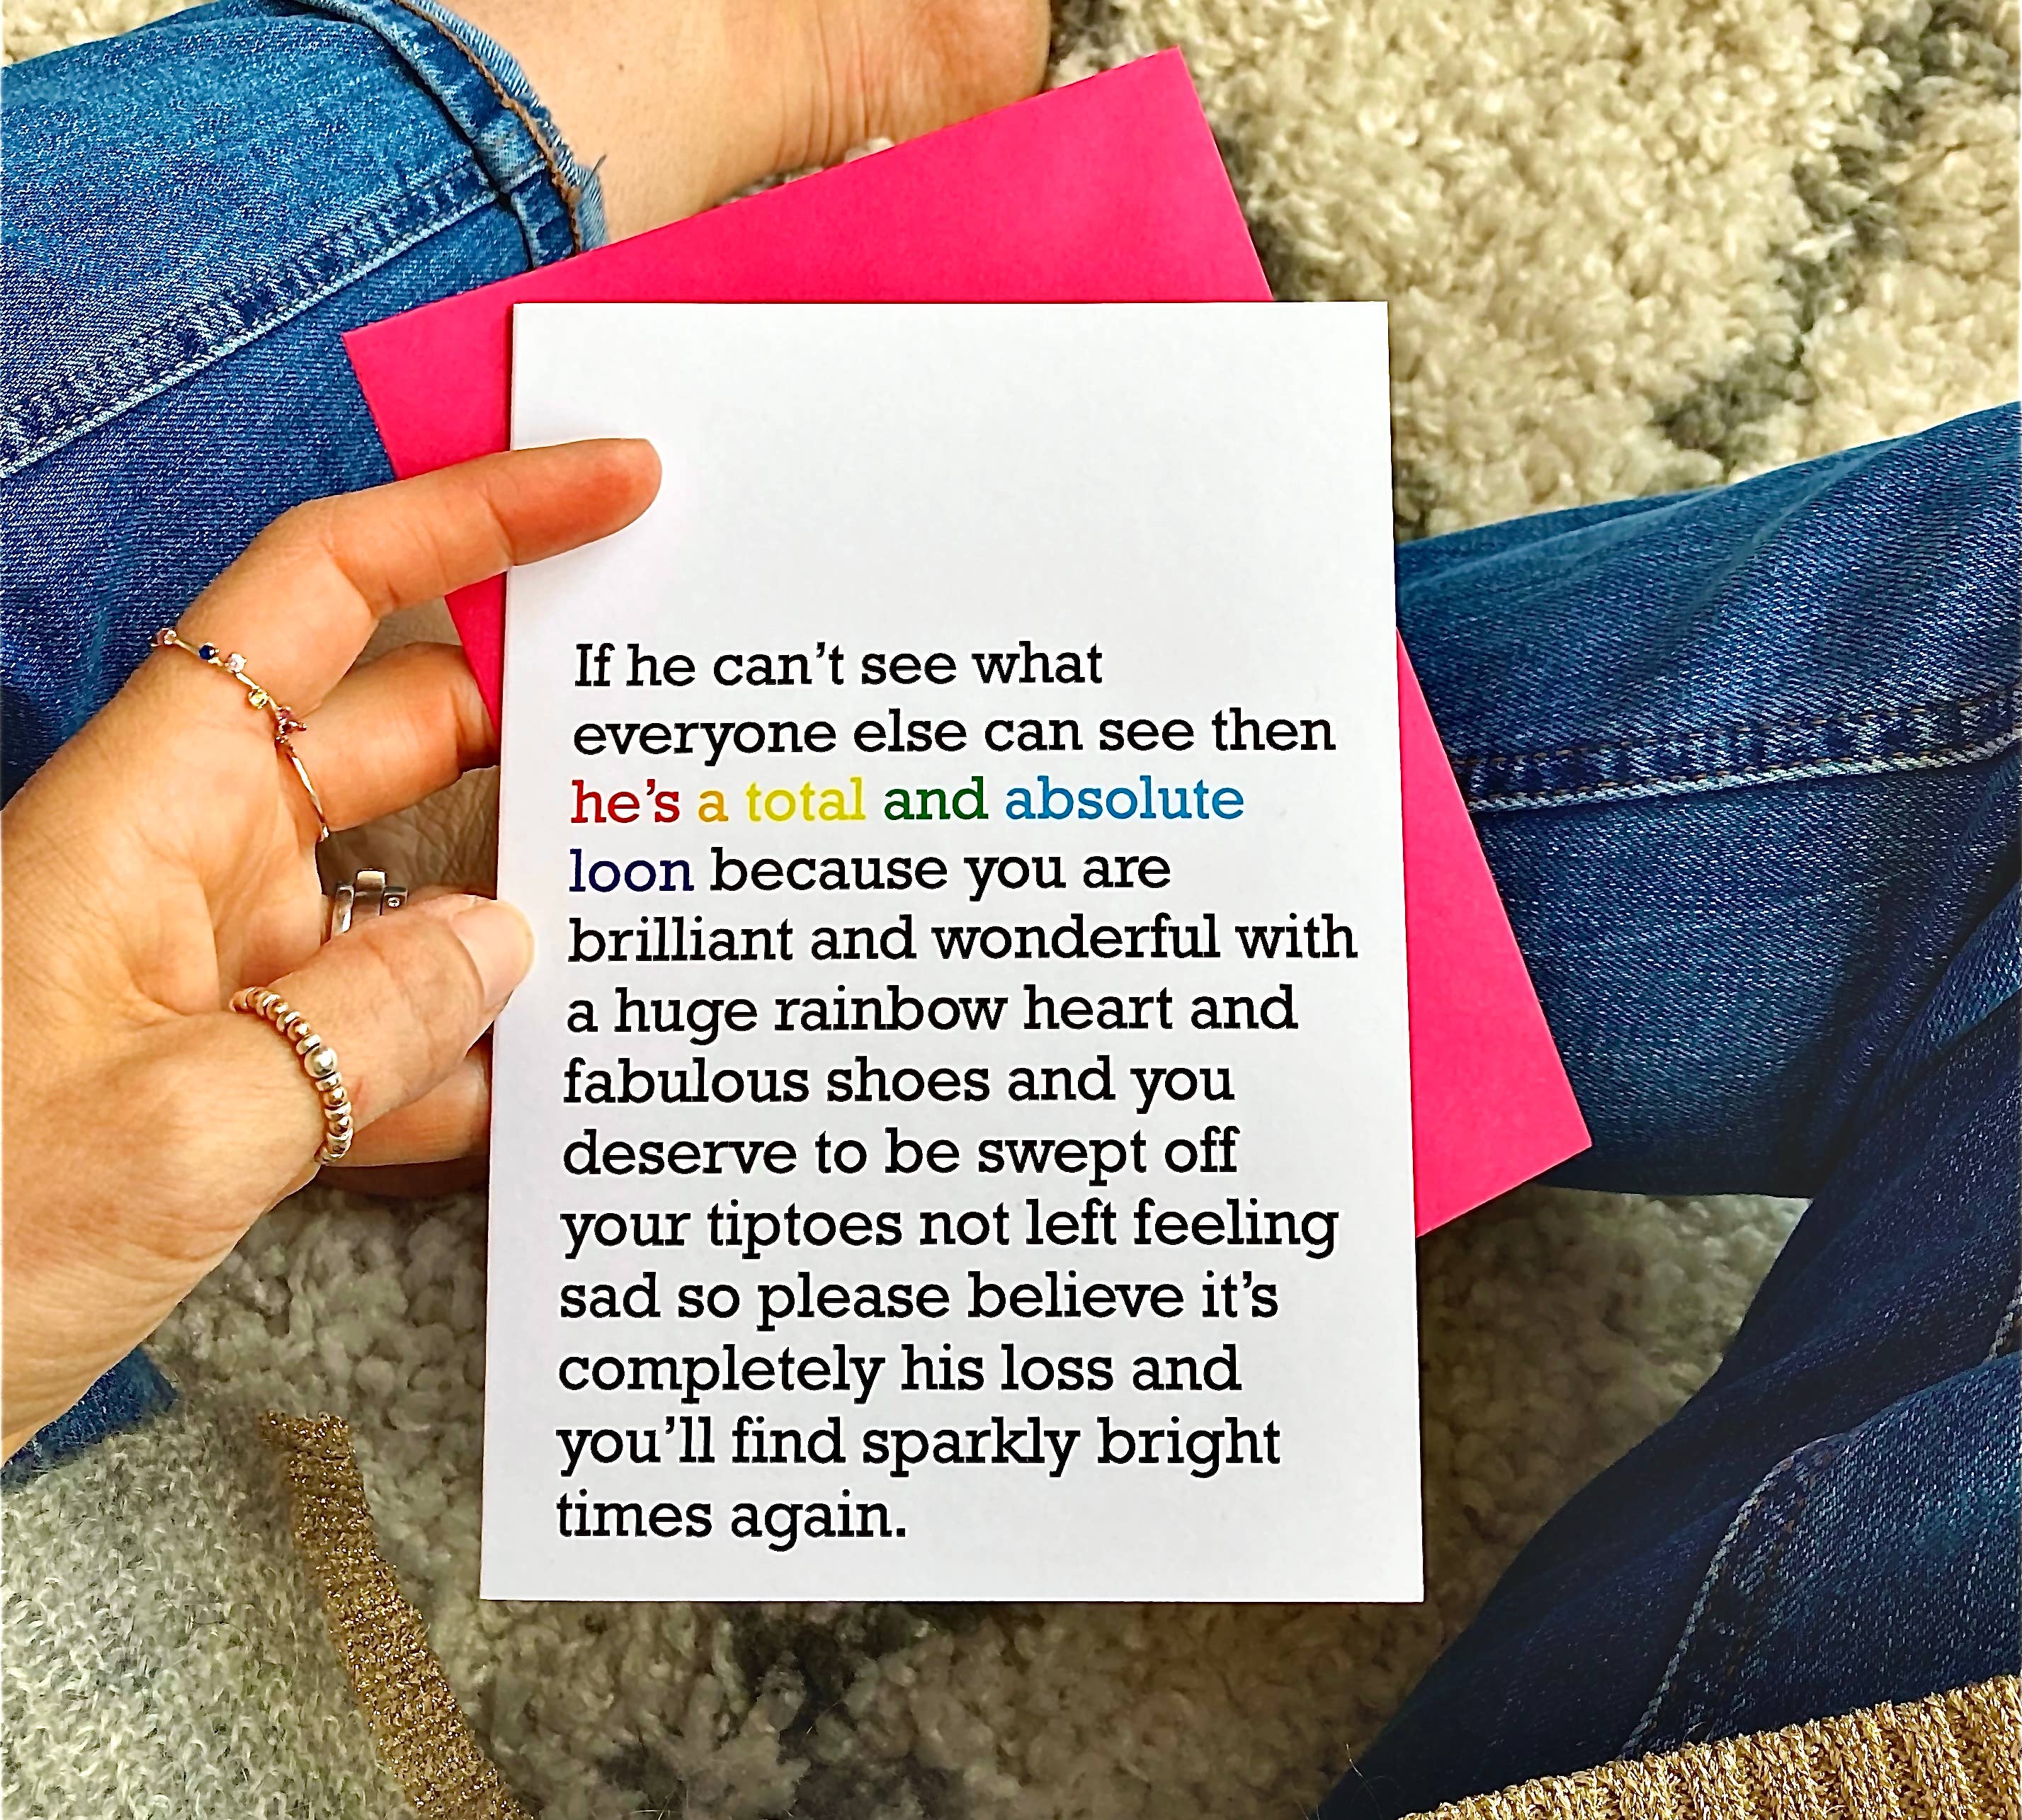 If he can’t see what
everyone else can see then
he’s a total and absolute
loon because you are
brilliant and wonderful with
a huge rainbow heart and
fabulous shoes and you
deserve to be swept off
your tiptoes not left feeling
sad so please believe it’s
completely his loss and
you’ll find sparkly bright
times again.